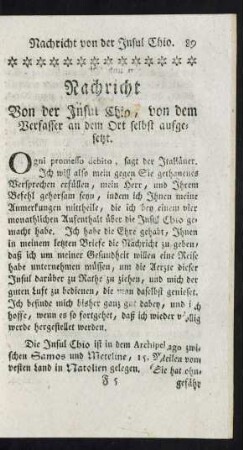 Nachricht von der Insul Chio. 89
Nachricht
Von der Insul Chio, von dem
Verfasser an dem Ort selbst aufge-
setzt.
Ogni promesso debito, sagt der Italiäner.
Ich will also mein gegen Sie gethanenes
Versprechen erfüllen, mein Herr, und Ihrem
Befehl gehorsam seyn, indem ich Ihnen meine
Anmerkungen mittheile, die ich bey einem vier
monathlichen Aufenthalt über die Insul Chio ge-
macht habe. Ich habe die Ehre gehabt, Ihnen
in meinem letzten Briefe die Nachricht zu geben,
daß ich um meiner Gesundheit willen eine Reise
habe unternehmen müssen, um die Aerzte dieser
Insul darüber zu Rathe zu ziehen, und mich der
guten Luft zu bedienen, die man daselbst geniesst.
Ich befinde mich bisher ganz gut dabey, und ich
hoffe, wenn es so fortgehet, daß ich wieder völlig
werde hergestellet werden.
Die Insul Chio ist in dem Archipelago zwi-
schen Samos und Meteline, 15. Meilen vom
vesten Land in Natolien gelegen. Sie hat ohn-
F 5 gefähr